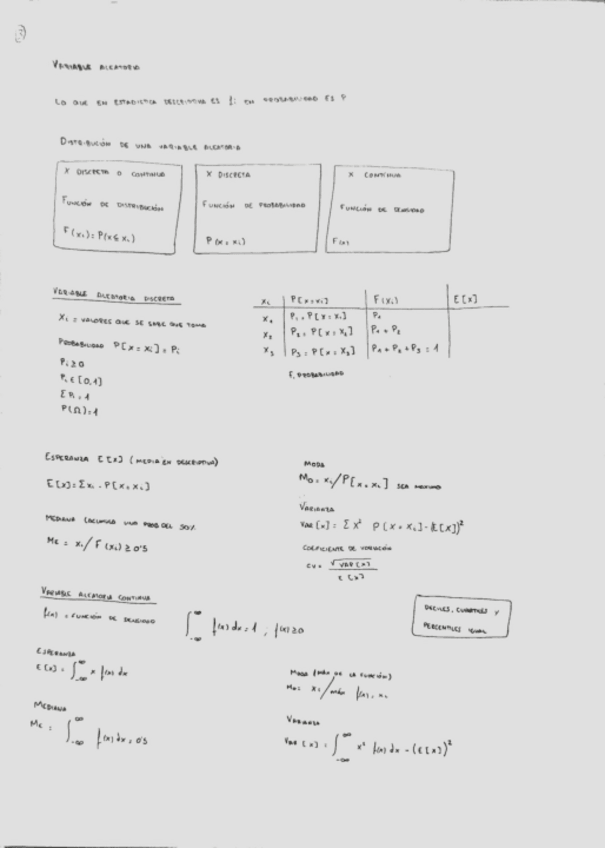 VARIABLE ALEATORIA
LO QUE EN ESTADÍSTICA DESCRIPTIVA ES fi EN PROBABILIDAD ES P
DISTRIBUCIÓN DE UNA VARIABLE ALEATORIA
X DISCRETA O CONTINUA
FUNCIÓN DE DISTRIBUCIÓN
F(xi)=P(x≤xi)
X DISCRETA
FUNCIÓN DE PROBABILIDAD
P(x=xi)
X CONTINUA
FUNCIÓN DE DENSIDAD
F(x)
VARIABLE ALEATORIA DISCRETA
Xi = VALORES QUE SE SABE QUE TOMA
PROBABILIDAD P[X=Xi]=Pi
Pi≥0
Pi∈[0,1]
ΣPi=1
P(Ω)=1
xi P[x=xi] F(xi) E[x]
x1 P1=P[x=x1] P1
x2 P2=P[x=x2] P1+P2
x3 P3=P[x=x3] P1+P2+P3=1
PROBABILIDAD
ESPERANZA E[X] (MEDIA EN DESCRIPTIVA)
E[x]=Σxi·P[x=xi]
MEDIANA (ACUMULA UNA PROB DEL 50%
Me = xi/F(xi)≥0'5
MODA
Mo=xi/P[x=xi] SEA MÁXIMO
VARIANZA
VAR[x]=Σx² P[X=xi]-(E[X])²
COEFICIENTE DE VARIACIÓN
CV=√VAR[x]
E[x]
VARIABLE ALEATORIA CONTINUA
f(x) = FUNCIÓN DE DENSIDAD ∫-∞^∞ f(x)dx=1 ; f(x)≥0
DECILES, CUARTILES Y
PERCENTILES IGUAL
ESPERANZA
E[x]=∫-∞^∞ x f(x)dx
MEDIANA
Me=∫-∞^∞ f(x)dx=0'5
MODA (MÁX DE LA FUNCIÓN)
Mo= xi/máx f(x)
VARIANZA
VAR[x]=∫-∞^∞ x² f(x)dx-(E[x])²